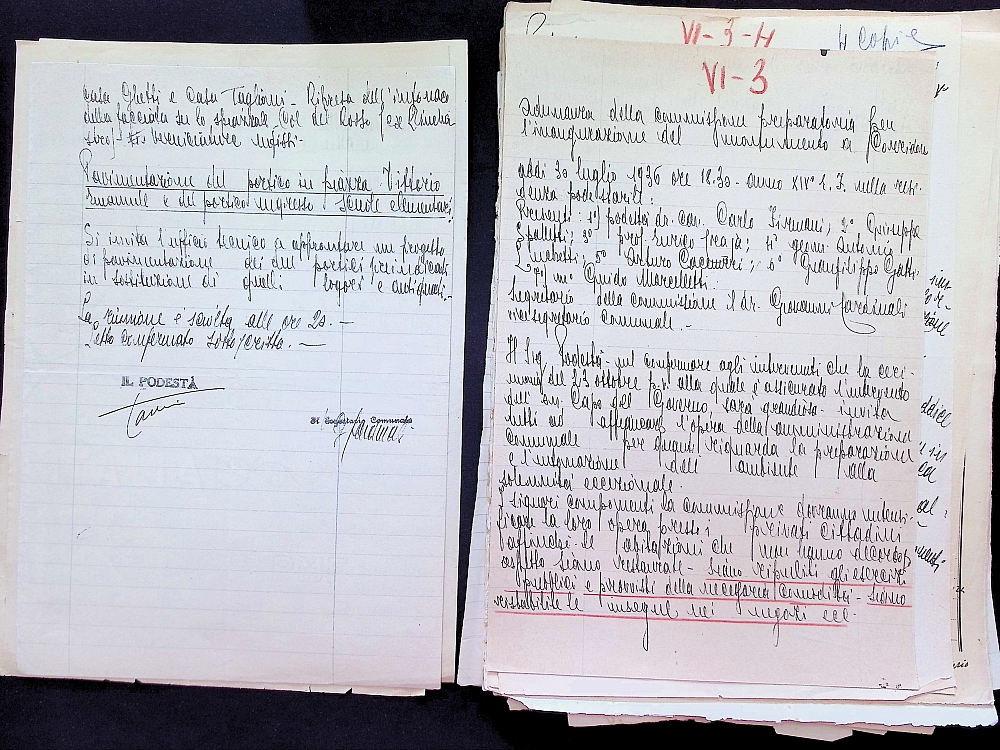 Casa Ghetti e Casa Taglioni - Ripresa dell'intonaco
della facciata su lo spiazzale Col del Rosso (ex Cinema
verniciature infissi -
Pavimentazione del portico in piazza Vittorio
Emanuele e del portico ingresso Scuole elementari.
Si invita l'ufficio tecnico a approntare un progetto
di pavimentazione dei due portici preindicati
in sostituzione di quelli logori e antiquati.-
La riunione è sciolta alle ore 20. -
Letto confermato sottoscritto. -
IL PODESTÀ
Il Segretario Comunale
VI-3-4 4 copie
VI-3
Adunanza della commissione preparatoria per
l'inaugurazione del monumento a Corridoni
addì 30 luglio 1936 ore 18.30 - anno XIV° E.F. nella resi-
denza podestarile:
Presenti: 1° podestà dr. cav. Carlo Firmani; 2° Giuseppe
Spalletti; 3° prof. Enrico 4° geom. Antonio
5° Arturo 6° Gianfilippo Gatti
7° m° Guido Marcelletti.
Segretario della commissione il dr. Giovanni Cardinali
vicesegretario comunale. -
Il Sig. Podestà - nel confermare agli intervenuti che la ceri-
monia del 23 ottobre p.v. alla quale è assicurato l'intervento
dell'on. Capo del Governo, sarà grandiosa - invita
tutti ad affiancare l'opera della amministrazione
Comunale per quanto riguarda la preparazione
e l'intonazione dell'ambiente alla
solennità eccezionale.
I signori componenti la commissione dovranno intensi-
ficare la loro opera presso i privati cittadini
affinchè le abitazioni che non hanno decoroso
aspetto siano restaurate - siano ripuliti gli esercizi
pubblici e provvisti della necessaria comodità - siano
ristabilite le insegne nei negozi ecc.